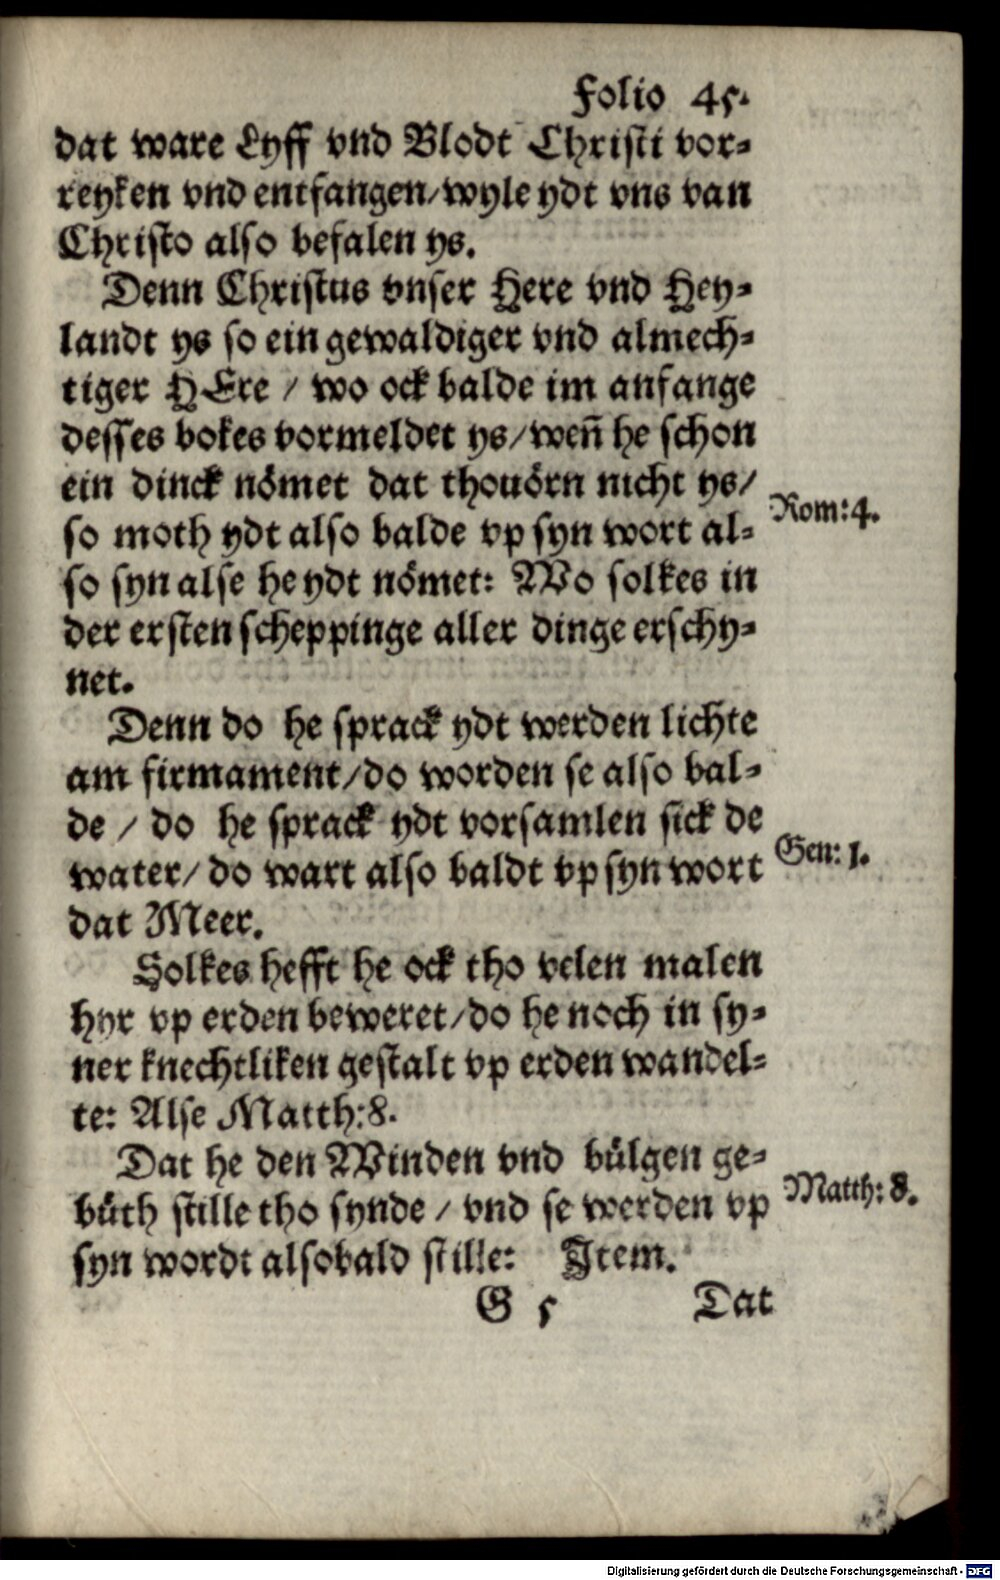 Folio 45.
dat ware Lyff vnd Blodt Christi vor-
reyken vnd entfangen/wyle ydt vns van
Christo also befalen ys.
Denn Christus vnser Here vnd Hey-
landt ys so ein gewaldiger vnd almech-
tiger HEre / wo ock balde im anfange
desses bokes vormeldet ys/wen̄ he schon
ein dinck nömet dat thouörn nicht ys/
Rom:4.
so moth ydt also balde vp syn wort al-
so syn alse he ydt nömet: Wo solkes in
der ersten scheppinge aller dinge erschy-
net.
Denn do he sprack ydt werden lichte
am firmament/do worden se also bal-
de / do he sprack ydt vorsamlen sick de
Gen: 1.
water/ do wart also baldt vp syn wort
dat Meer.
Solkes hefft he ock tho velen malen
hyr vp erden beweret/do he noch in sy-
ner knechtliken gestalt vp erden wandel-
te: Alse Matth:8.
Dat he den Winden vnd bülgen ge-
Matth: 8.
büth stille tho synde / vnd se werden vp
syn wordt alsobald stille: Item.
G 5 Dat
Digitalisierung gefördert durch die Deutsche Forschungsgemeinschaft - DFG